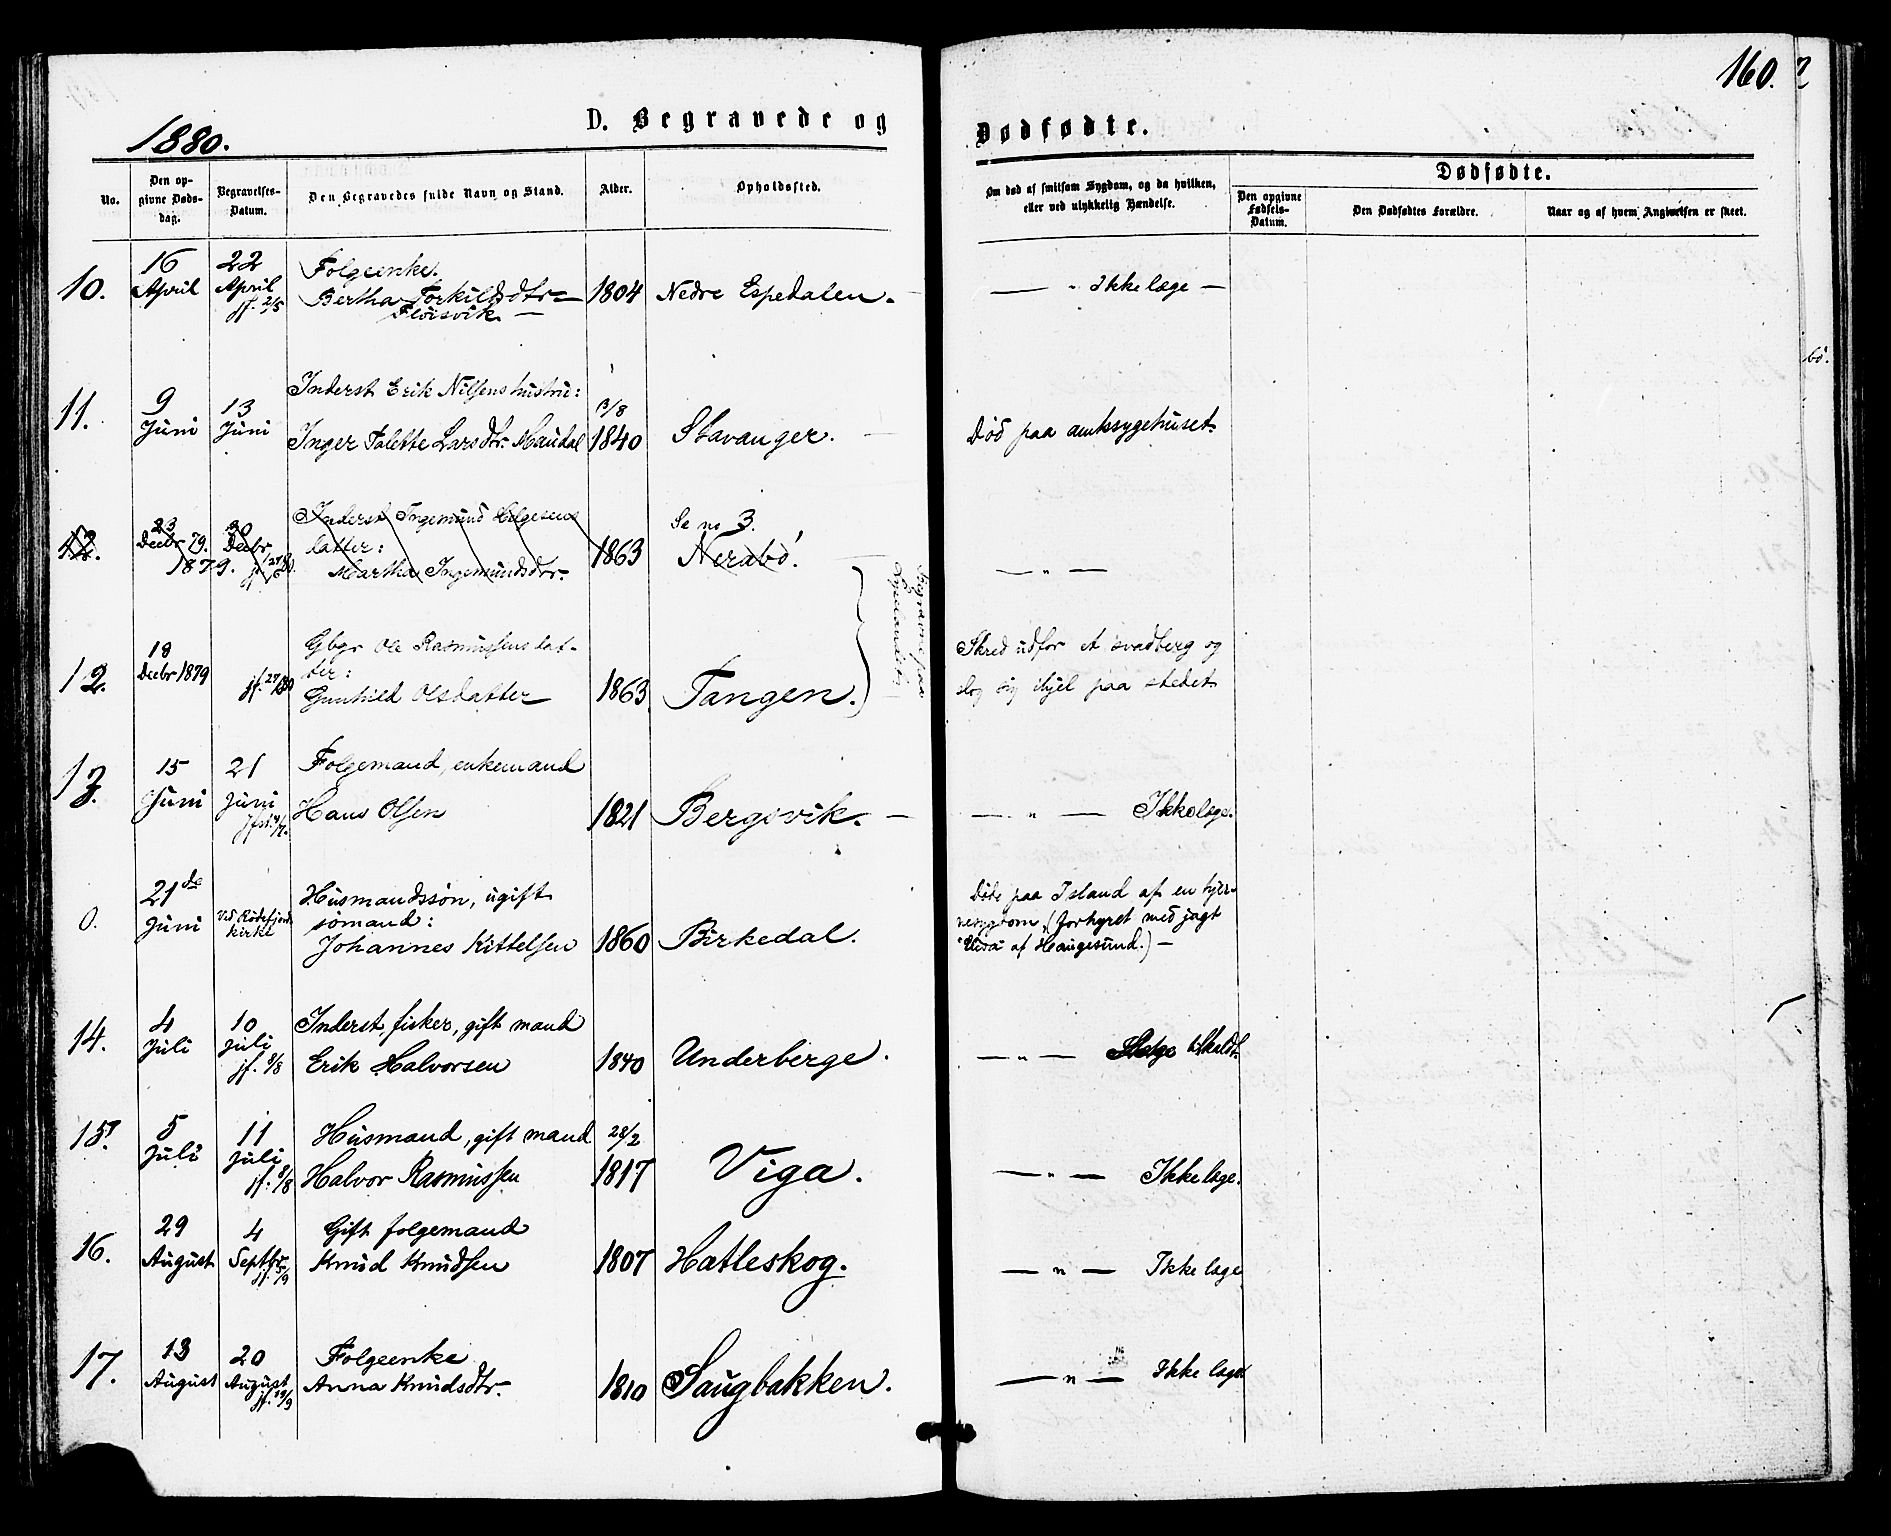 160.
1880.
D. Begravede og
Dødfødte.
No.
Den op-
givne Døds-
dag.
Begravelses-
Datum.
Den Begravedes fulde Navn og Stand.
Alder.
Opholdssted.
Om død af smitsom Sygdom, og da hvilken,
eller ved ulykkelig Hændelse.
Dødfødte.
Den opgivne
Fødsels-
Datum.
Den Dødfødtes Forældre.
Naar og af hvem Angivelsen er skeet.
10.
16
April
22
April
jf. 2/5
Folgeenke.
Bertha Torkildsdtr
Fløisvik. —
1804
Nedre Espedalen.
— " Ikke læge —
11.
9
Juni
13
Juni
Inderst Erik Nilsens hustru:
Inger Talette Larsdtr. Maudal
13/8
1840
Stavanger.
Død paa amtssygehuset.
12.
23
Decbr 79.
1879.
30
Decbr
Inderst Ingemund Helgesens
datter:
Martha Ingemundsdtr.
1863
Se no 3.
Nerabø.
— " —
12.
18
Decbr 1879
Gbgr Ole Rasmussens dat-
ter:
Gunhild Olsdatter
1863
Tangen.
Skred udfor et svadberg og
slog sig ihjel paa stedet
13.
15
Juni
21
Juni
Folgemand, enkemand
Hans Olsen
1821
Bergsvik. —
— " — Ikke læge.
0.
21de
Juni
Ved
kirke
Husmandssøn, ugift
sømand:
Johannes Kittelsen
1860
Birkedal.
Døde paa Island af en hjer-
nesygdom, (forhyret med jagt
af Haugesund.) —
14.
4
Juli
10
juli
jf. 8/8
Inderst, fisker, gift mand
Erik Halvorsen
1840
Underberge.
— " —
15.
5
Juli
11
juli
jf. 8/8
Husmand, gift mand
Halvor Rasmussen
28/2
1817
Viga.
— " — Ikke læge.
16.
29
August
4
Septbr
jf. 5/9
Gift folgemand
Knud Knudsen
1807
Hatleskog.
— " — Ikke læge
17.
13
August
20
August
jf. 19/9
Folgeenke
Anna Knudsdtr.
1810
Saugbakken.
— " — Ikke læge